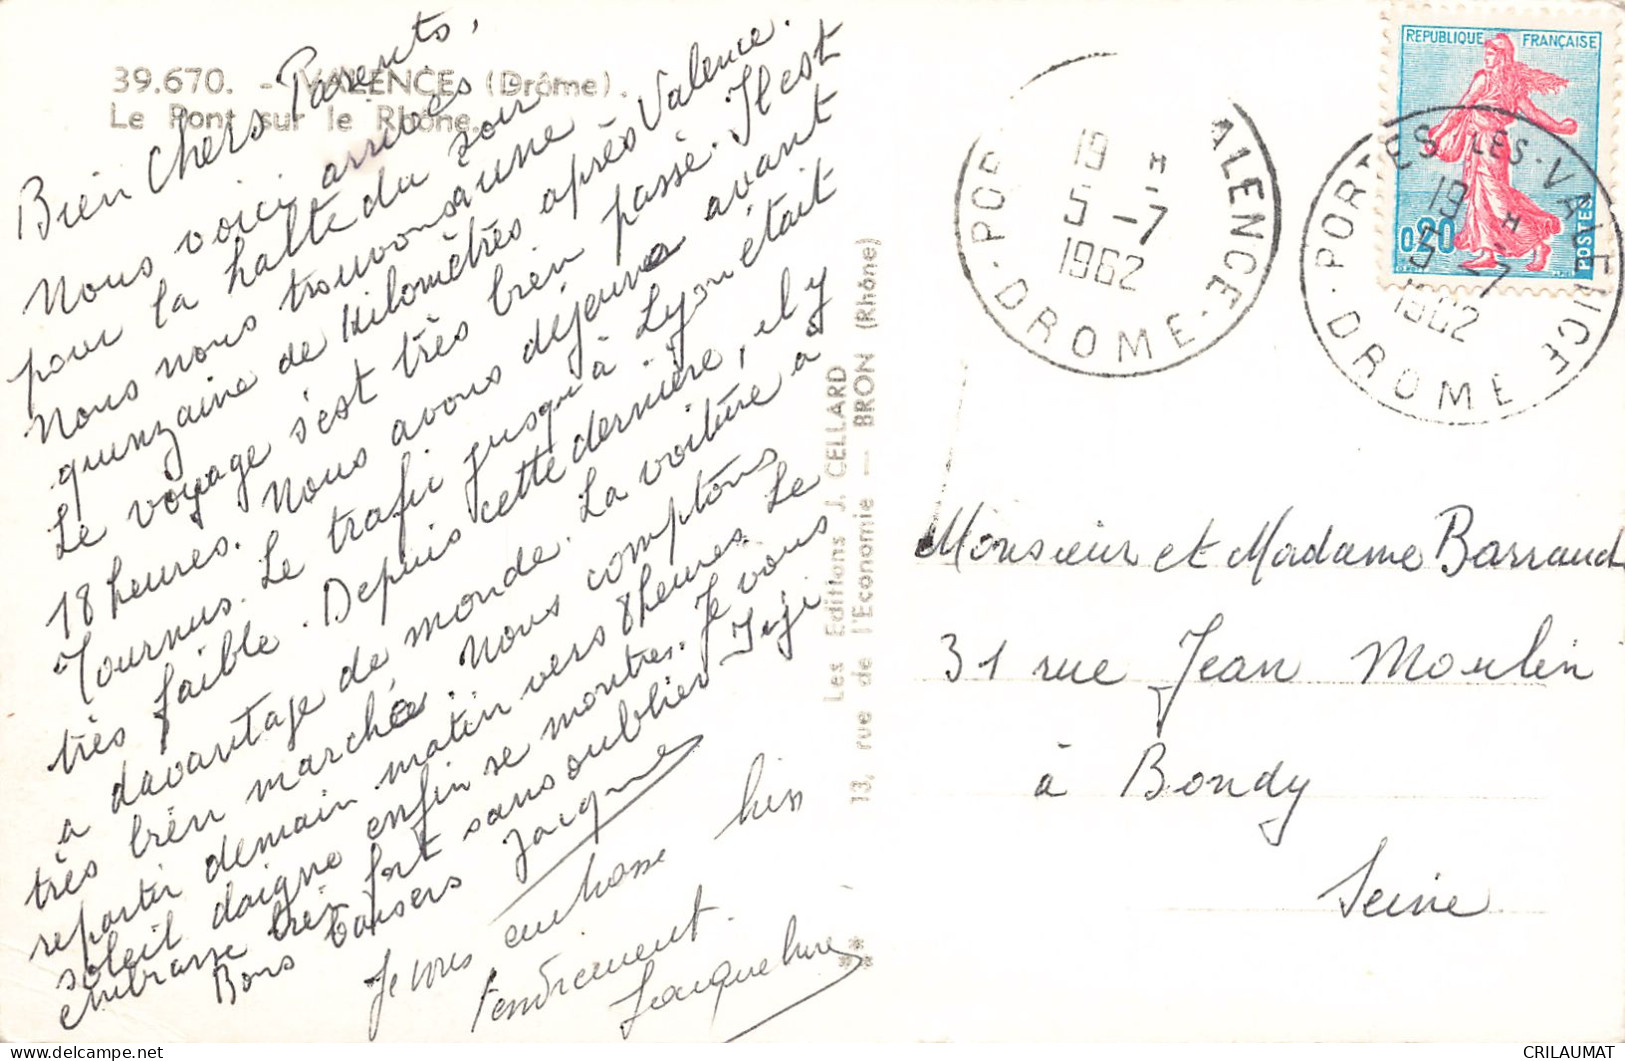 39.670. - VALENCE (Drôme).
Le Pont sur le Rhône.
Bien Chers Parents,
Nous voici arrivés
pour la halte du soir
Nous nous trouvons à une
quinzaine de Kilomètres après Valence.
Le voyage s'est très bien passé. Il est
18 heures. Nous avons déjeuné avant
Tournus. Le trafic jusqu'à Lyon était
très faible. Depuis cette dernière, il y
a davantage de monde. La voiture a
très bien marché. Nous comptons
repartir demain matin vers 8 heures. Le
soleil daigne enfin se montrer. Je vous
embrasse très fort sans oublier Jeji
Bons baisers Jacques
Je vous embrasse bien
tendrement.
Jacqueline
Les Editions J. CELLARD
13, rue de l'Economie — BRON (Rhône)
REPUBLIQUE FRANÇAISE
0,20
POSTES
PORTES-LES-VALENCE
19 H
5-7
1962
DROME
PORTES LES-VALENCE
19 H
5-7
1962
DROME
Monsieur et Madame Barraud
31 rue Jean Moulin
à Bondy
Seine
CRILAUMAT